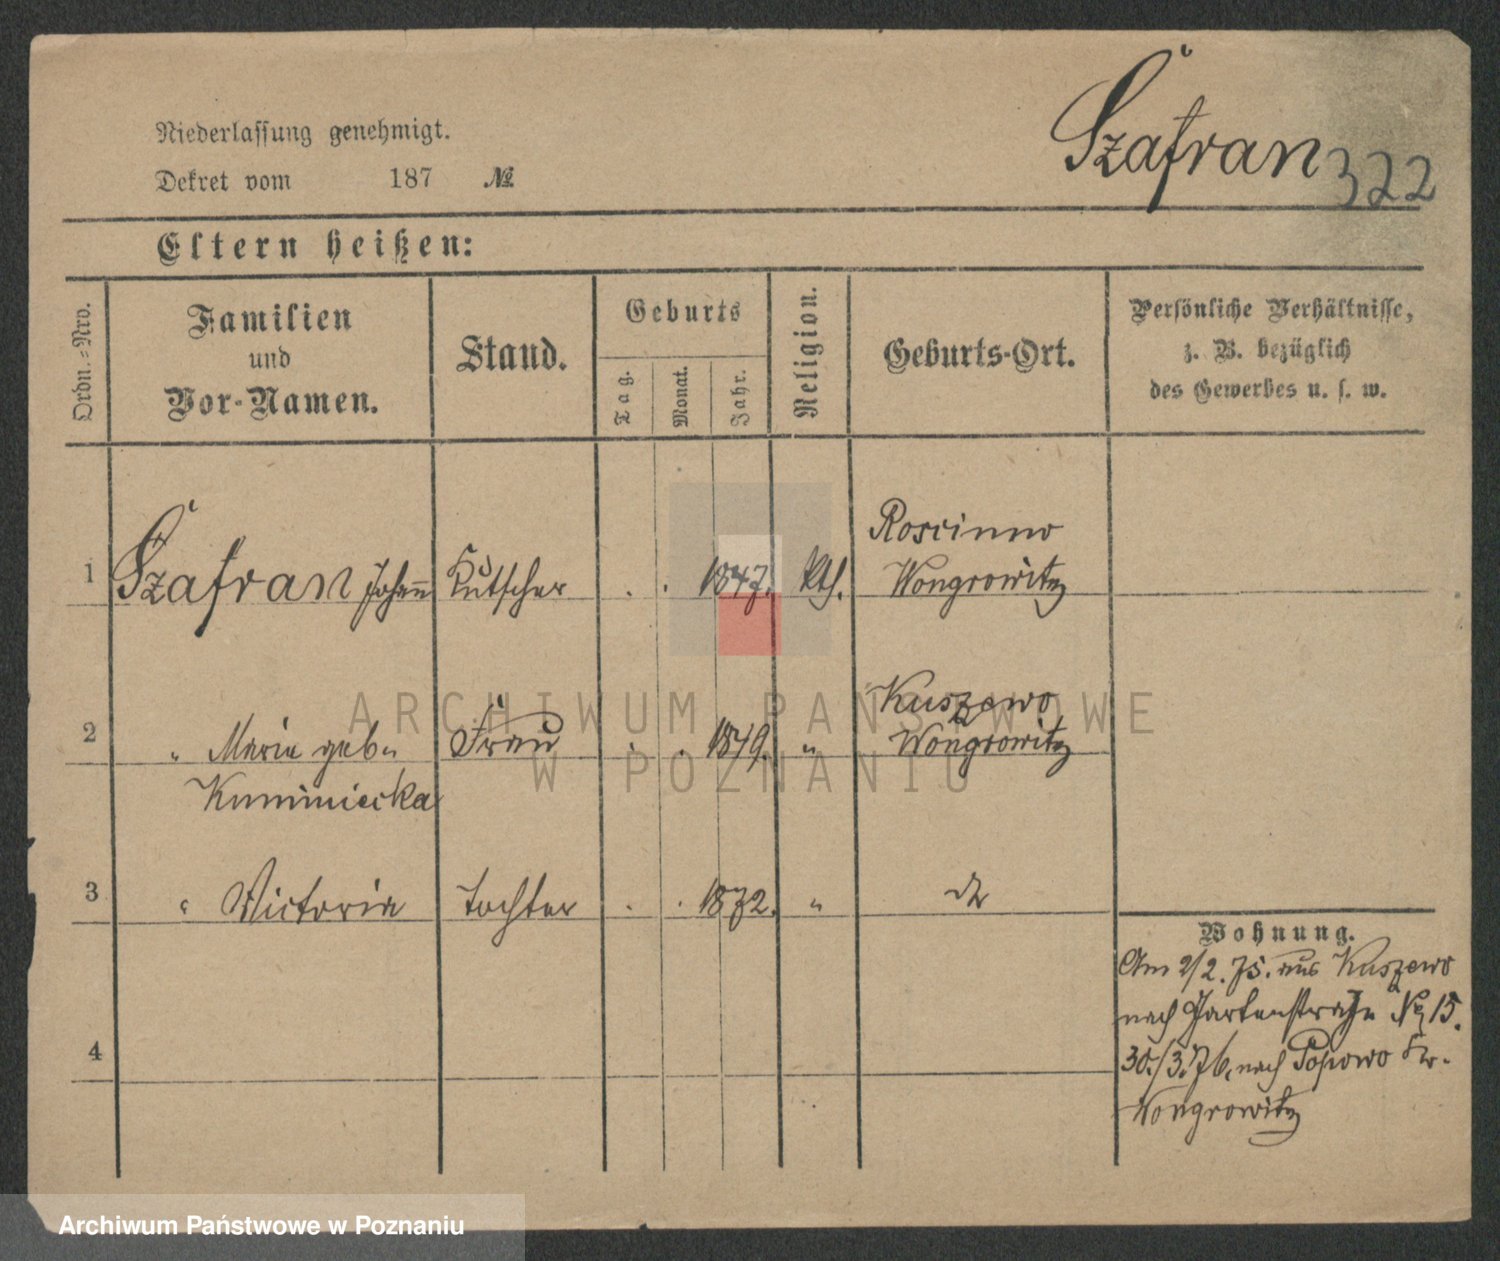 Szafran 322
Niederlassung genehmigt.
Dekret vom 187 №
Eltern heißen:
Ordn.=Nro.
Familien
und
Vor-Namen.
Stand.
Geburts
Tag.
Monat.
Jahr.
Religion.
Geburts-Ort.
Persönliche Verhältnisse,
z. B. bezüglich
des Gewerbes u. s. w.
Roscinno
1 Szafran Johann Kutscher . . 1847. kth. Wongrowitz
Kuszewo
2 " Maria geb. Frau . . 1849. " Wongrowitz
3 " Victoria Tochter . . 1872. "
4
Wohnung.
Am 2/2. 75. aus Kuszewo
nach Gartenstraße No 15.
30./3. 76. nach Popowo Kr.
Wongrowitz
ARCHIWUM PAŃSTWOWE
W POZNANIU
Archiwum Państwowe w Poznaniu